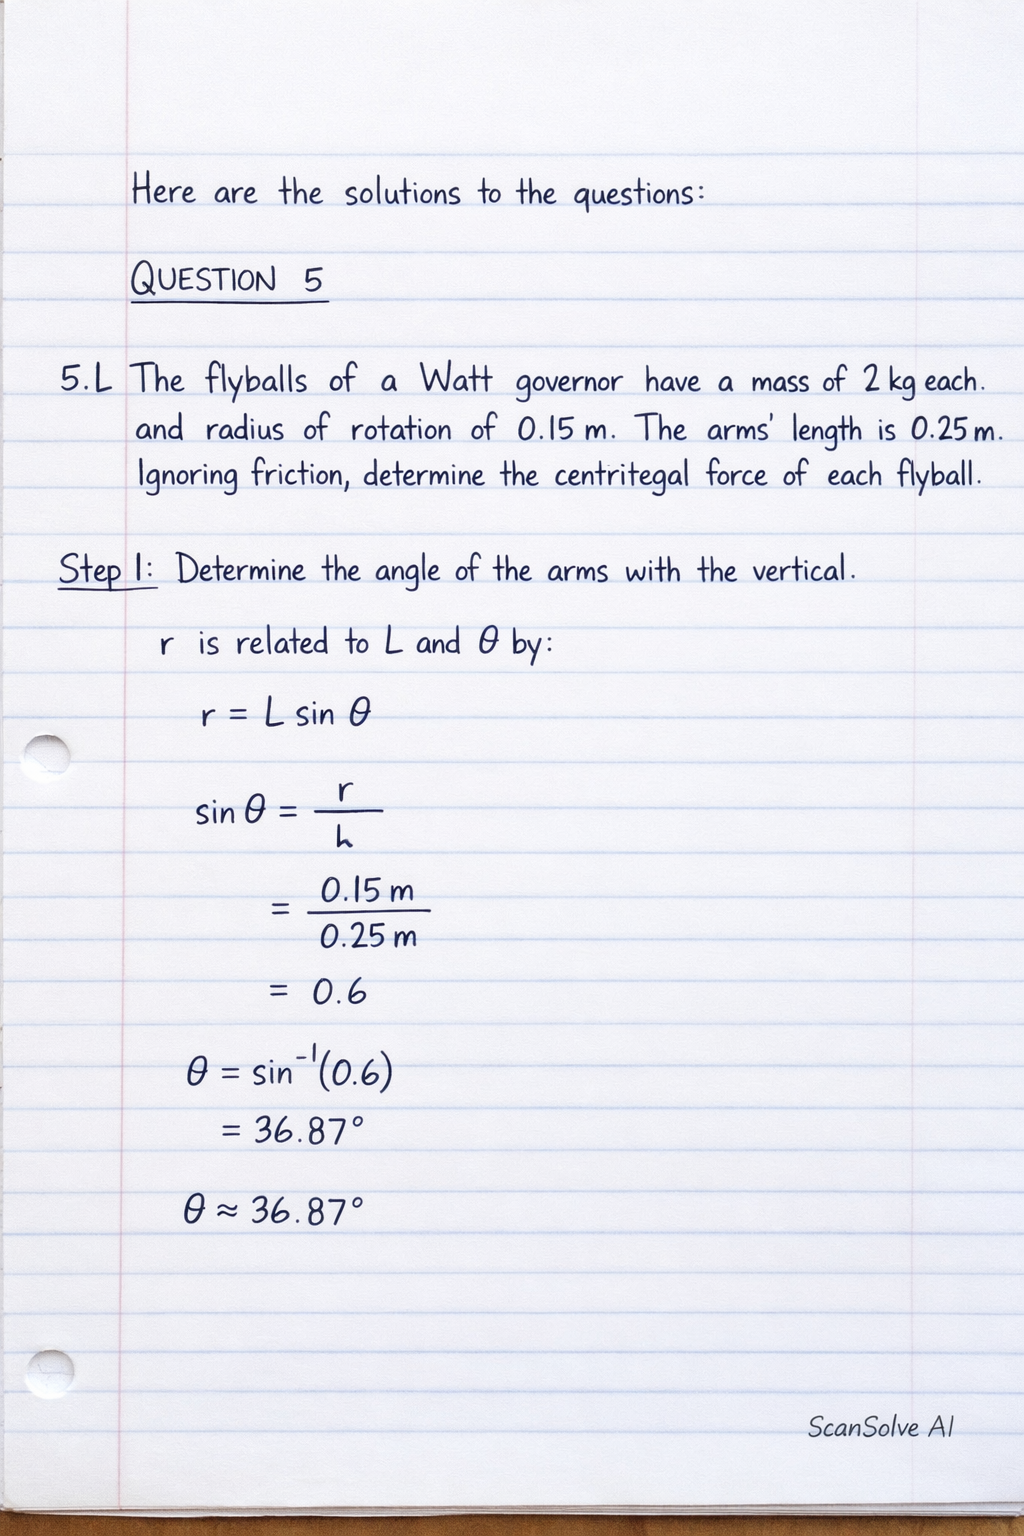 Here are the solutions to the questions:
QUESTION 5
5.L The flyballs of a Watt governor have a mass of 2 kg each.
and radius of rotation of 0.15 m. The arms' length is 0.25 m.
Ignoring friction, determine the centritegal force of each flyball.
Step 1: Determine the angle of the arms with the vertical.
r is related to L and θ by:
r = L sin θ
sin θ = r / h
= 0.15 m / 0.25 m
= 0.6
θ = sin⁻¹(0.6)
= 36.87°
θ ≈ 36.87°
ScanSolve AI